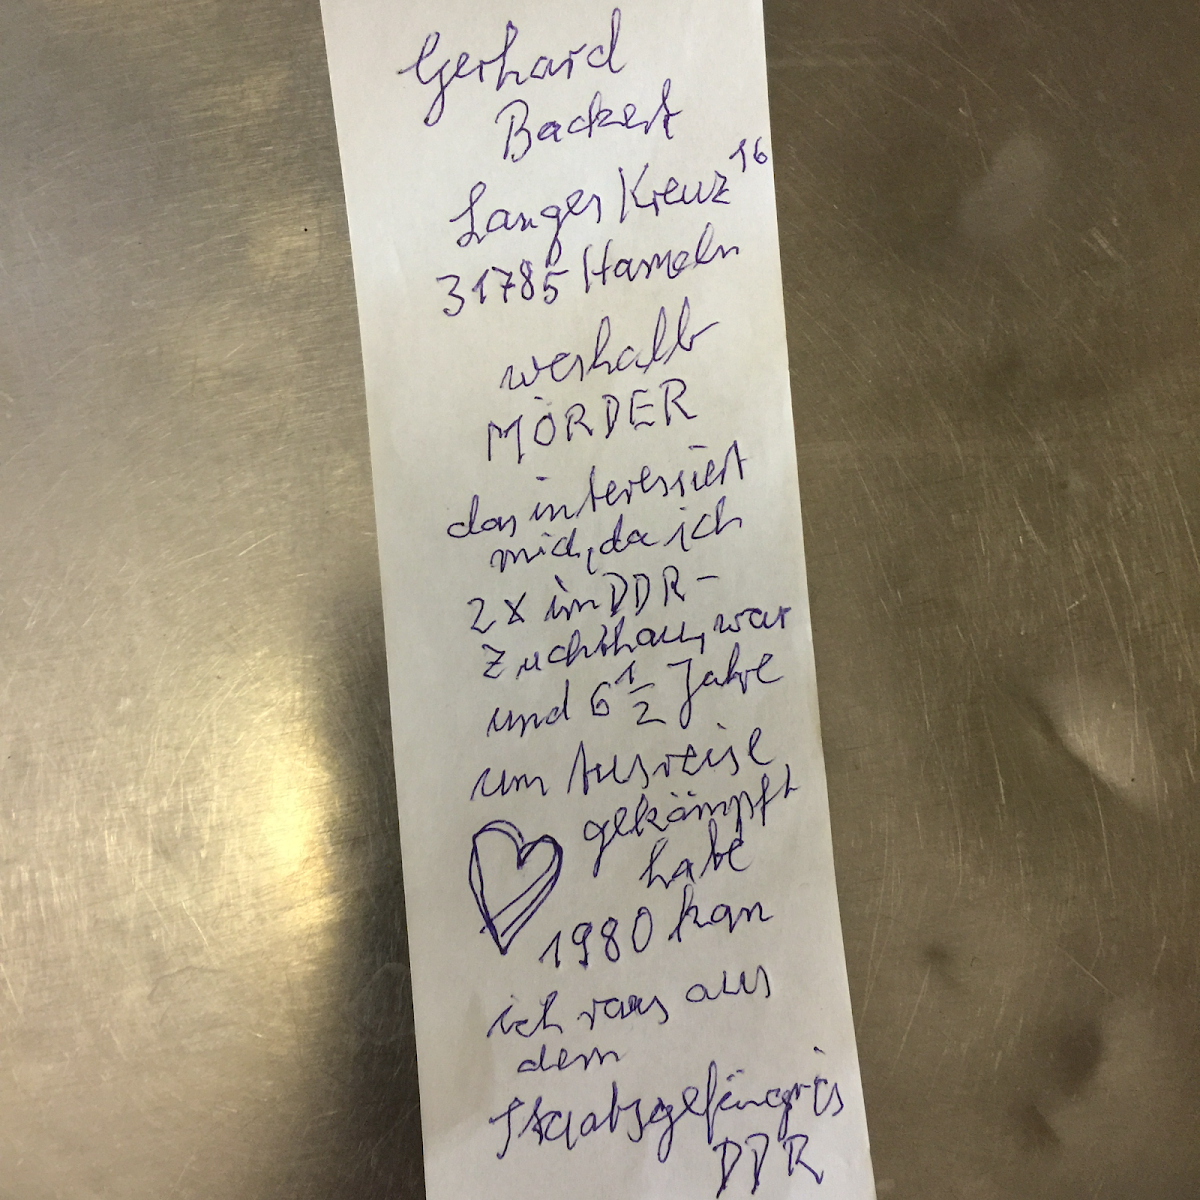 Gerhard
Backert
Langes Kreuz 16
31785 Hameln
weshalb
MÖRDER
das interessiert
mich, da ich
2x im DDR-
Zuchthaus war
und 6 1/2 Jahre
um Ausreise
gekämpft
habe
1980 kam
ich raus aus
dem
Staatsgefängnis
DDR